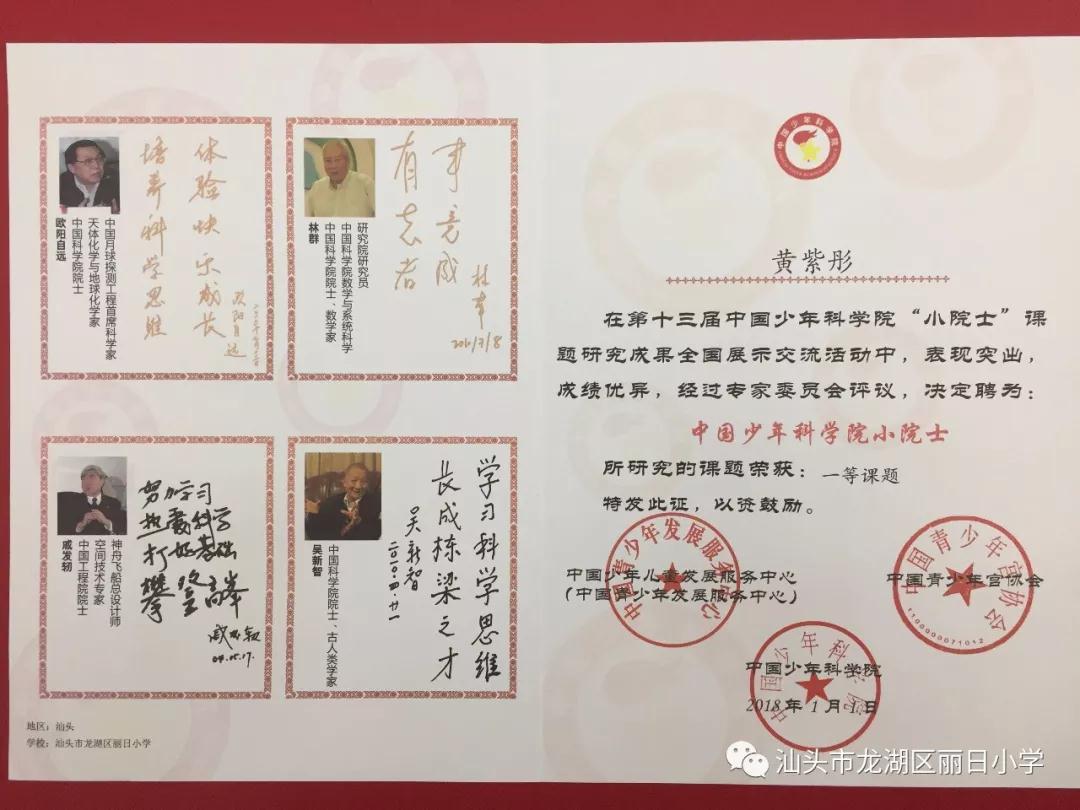 体验快乐成长
培养科学思维
欧阳自远
中国月球探测工程首席科学家
天体化学与地球化学家
中国科学院院士
欧阳自远
有志者
事竟成
林群
2011/3/8
研究院研究员
中国科学院数学与系统科学
中国科学院院士、数学家
林群
努力学习
热爱科学
打好基础
攀登高峰
戚发轫
04.05.17.
神舟飞船总设计师
空间技术专家
中国工程院院士
戚发轫
学习科学思维
长成栋梁之才
吴新智
二〇一〇.四.廿一
中国科学院院士、古人类学家
吴新智
地区：汕头
学校：汕头市龙湖区丽日小学
中国少年科学院
黄紫彤
在第十三届中国少年科学院“小院士”课
题研究成果全国展示交流活动中，表现突出，
成绩优异，经过专家委员会评议，决定聘为：
中国少年科学院小院士
所研究的课题荣获：一等课题
特发此证，以资鼓励。
中国少年儿童发展服务中心
(中国青少年发展服务中心)
中国青少年发展服务中心
中国青少年宫协会
中国青少年宫协会
1100000071012
中国少年科学院
中国少年科学院
2018年1月1日
汕头市龙湖区丽日小学